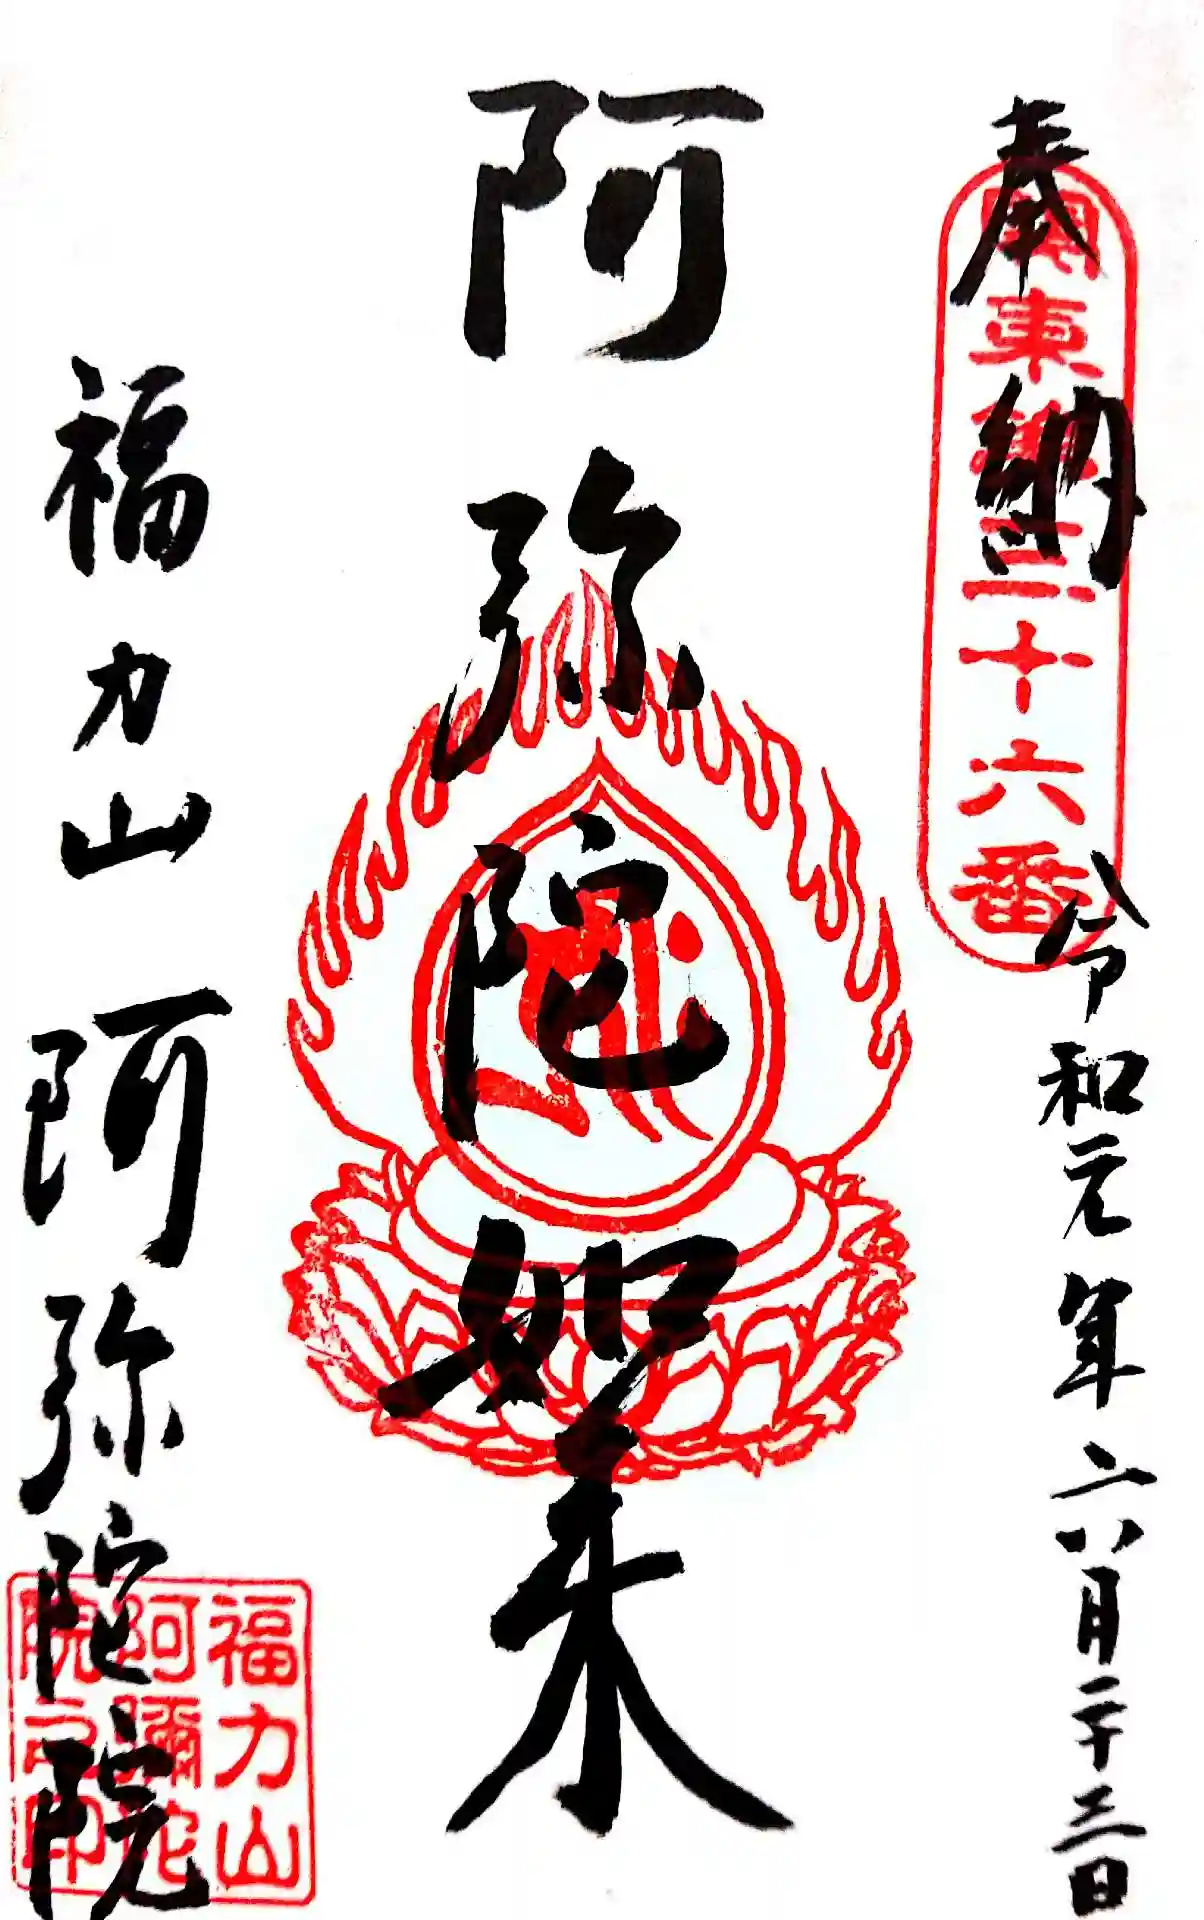 奉納
令和元年六月二十三日
関東
三十六番
阿弥陀如来
福力山
阿弥陀院
福力山
阿彌陀
院之印